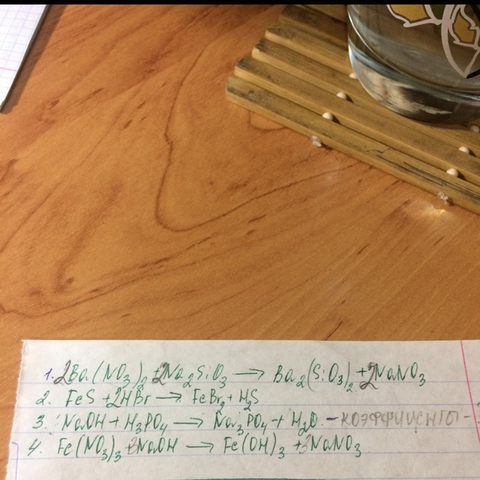 1. 2Ba(NO₃)₂ + 2Na₂SiO₃ → Ba₂(SiO₃)₂ + 2NaNO₃
2. FeS + 2HBr → FeBr₂ + H₂S
3. NaOH + H₃PO₄ → Na₃PO₄ + H₂O. - КОЭФФИЦИЕНТЫ -
4. Fe(NO₃)₃ + 3NaOH → Fe(OH)₃ + 3NaNO₃